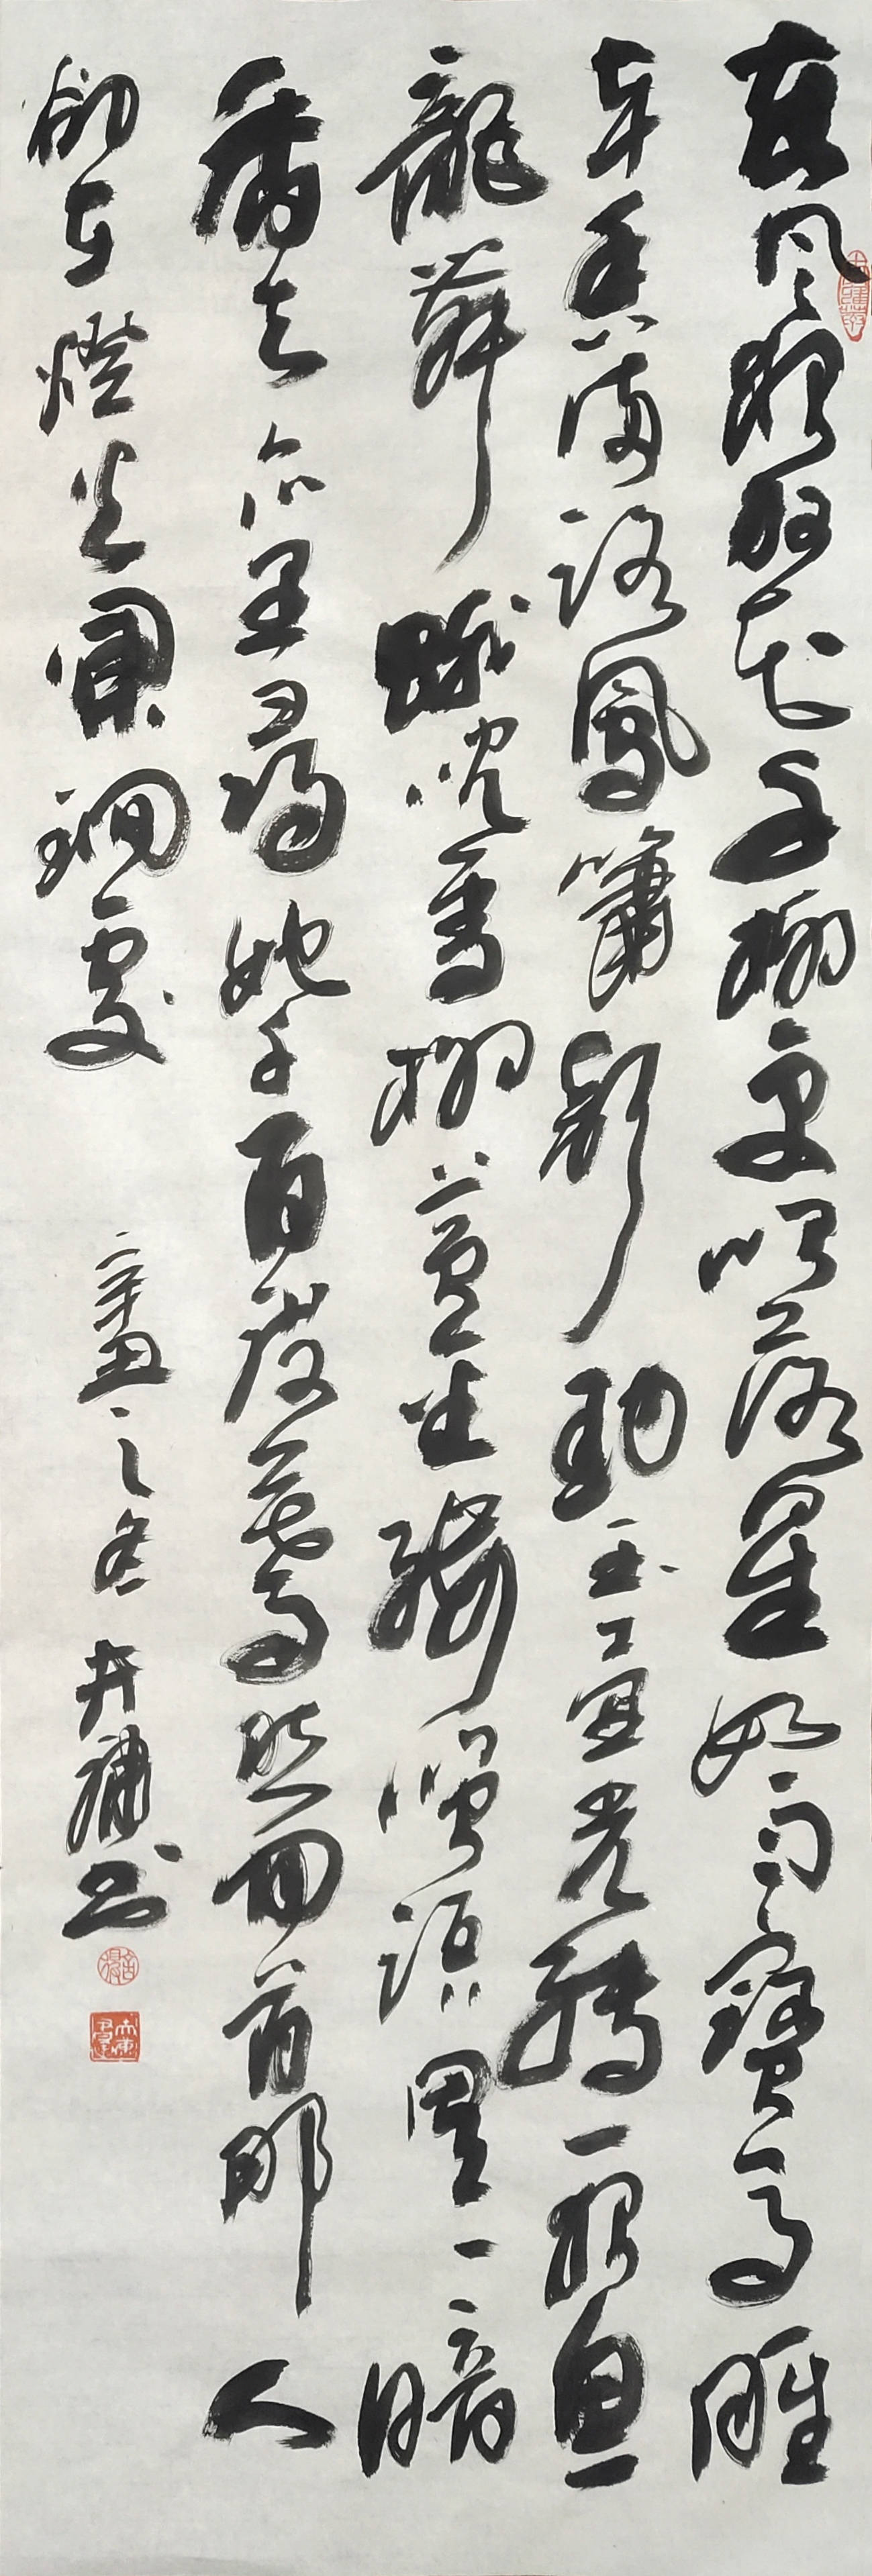 東風夜放花千樹更吹落星如雨寶馬雕
車香滿路鳳簫聲動玉壺光轉一夜魚
龍舞蛾兒雪柳黃金縷笑語盈盈暗
香去衆里尋她千百度驀然回首那人
卻在燈火闌珊處
辛丑之冬 书